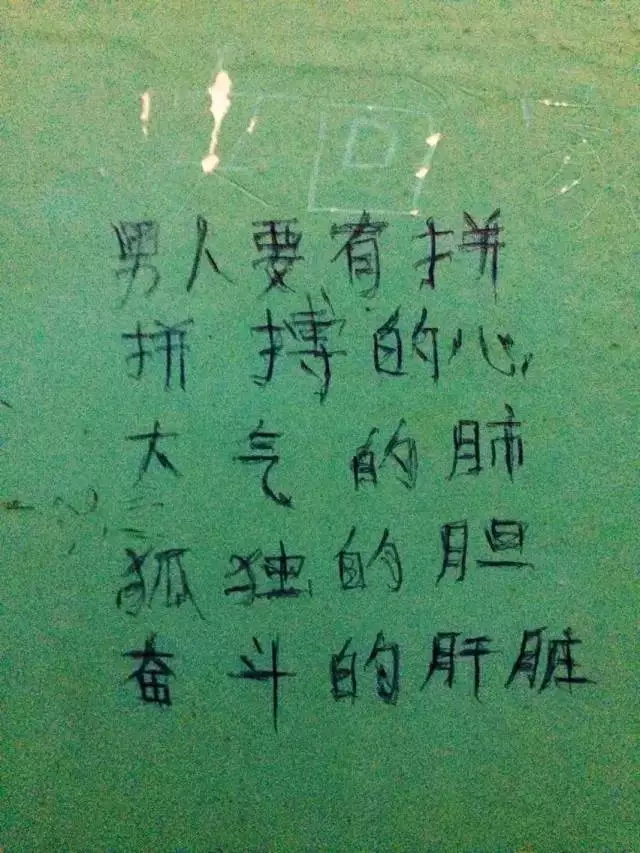 男人要有拼
拼搏的心
大气的肺
狐独的胆
奋斗的肝脏